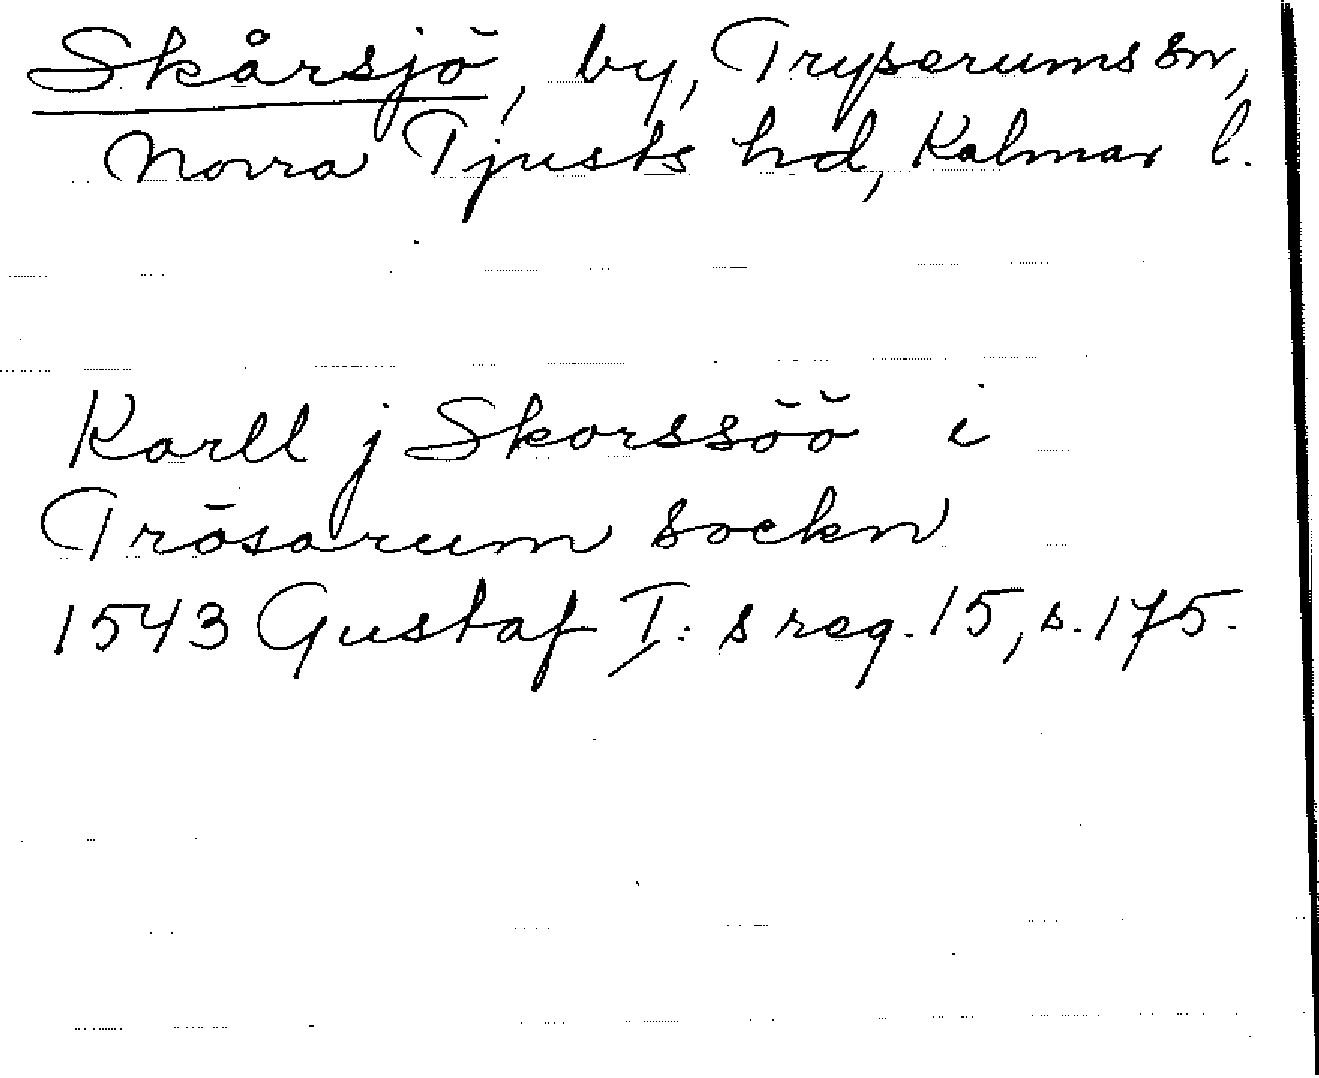 Skårsjö, by, Tryserums sn,
Norra Tjusts hd, Kalmar l.
Karll j Skorssöö i
Trösarum sockn
1543 Gustaf I:s reg. 15, s. 175.